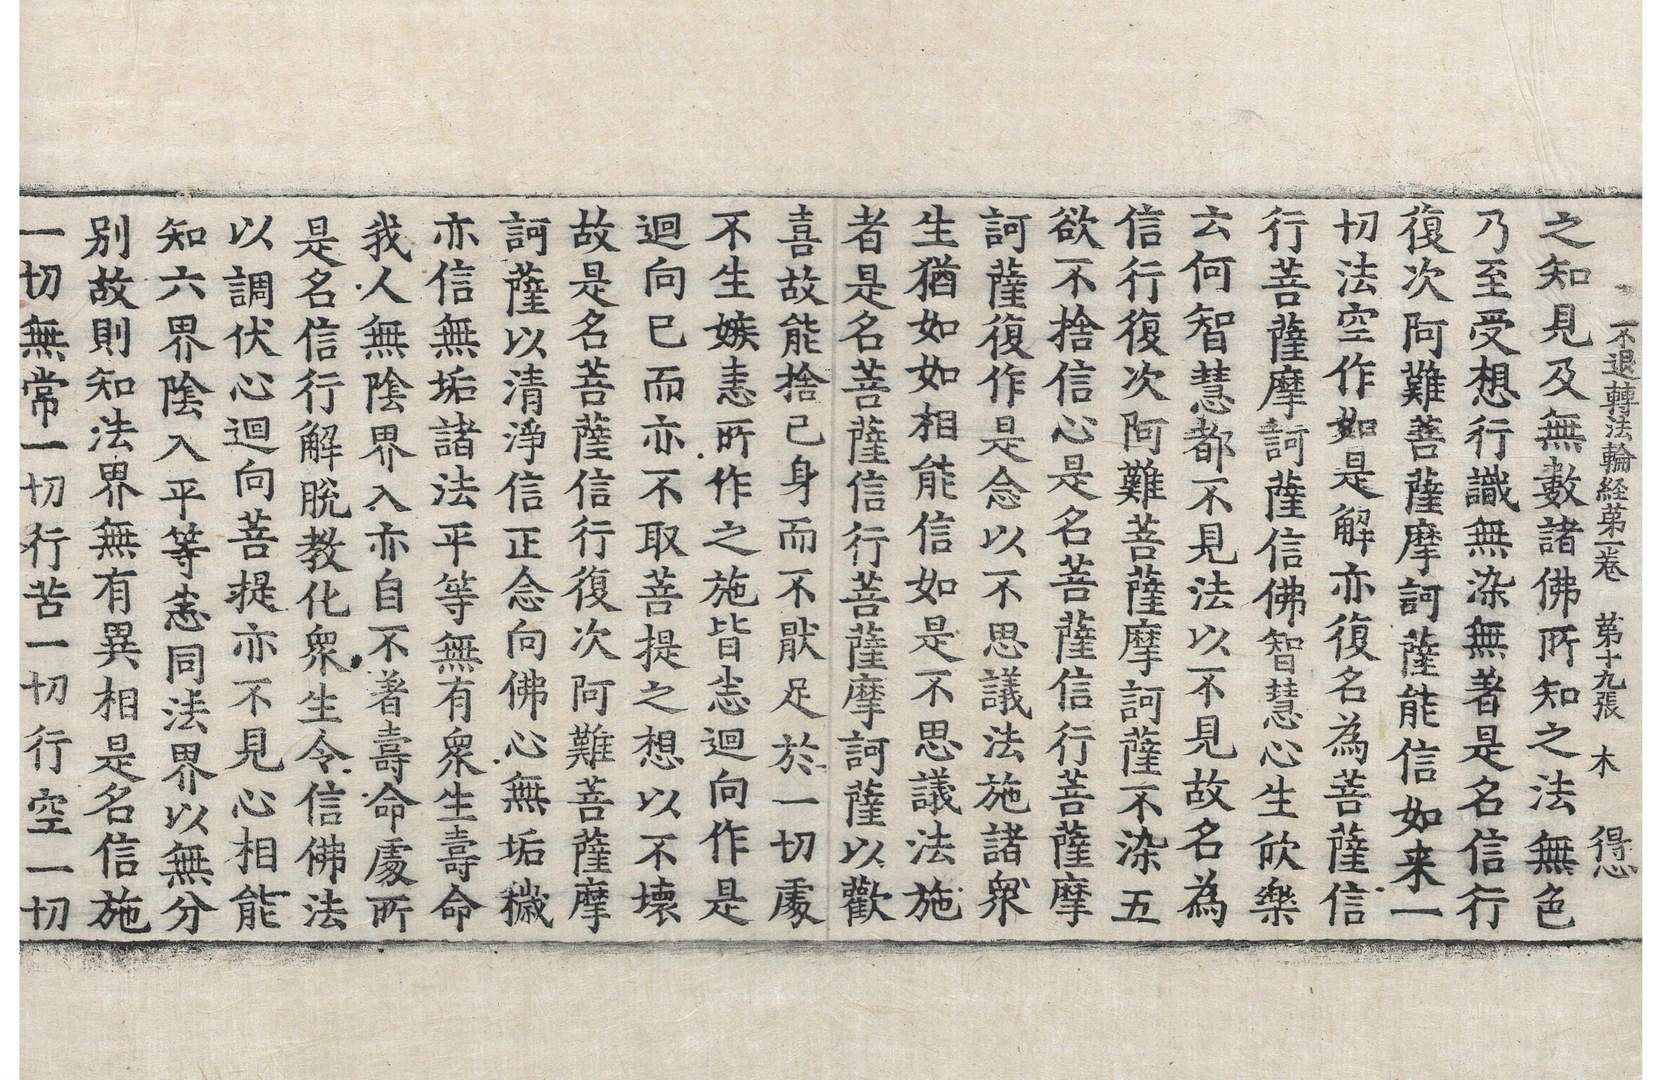 不退轉法輪経苐一卷 苐十九張 木 得心
之知見及無數諸佛所知之法無色
乃至受想行識無染無著是名信行
復次阿難菩薩摩訶薩能信如来一
切法空作如是解亦復名為菩薩信
行菩薩摩訶薩信佛智慧心生欣樂
云何智慧都不見法以不見故名為
信行復次阿難菩薩摩訶薩不染五
欲不捨信心是名菩薩信行菩薩摩
訶薩復作是念以不思議法施諸衆
生猶如如相能信如是不思議法施
者是名菩薩信行菩薩摩訶薩以歡
喜故能捨己身而不猒足於一切處
不生嫉恚所作之施皆悉迴向作是
迴向已而亦不取菩提之想以不壞
故是名菩薩信行復次阿難菩薩摩
訶薩以清淨信正念向佛心無垢穢
亦信無垢諸法平等無有衆生壽命
我人無陰界入亦自不著壽命處所
是名信行解脫教化衆生令信佛法
以調伏心迴向菩提亦不見心相能
知六界陰入平等悉同法界以無分
別故則知法界無有異相是名信施
一切無常一切行苦一切行空一切